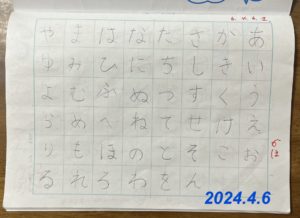 あいうえお
かきくけこ
さしすせそ
たちつてと
なにぬねの
はひふへほ
まみむめも
やゆよらり
るれろわをん
2024.4.6